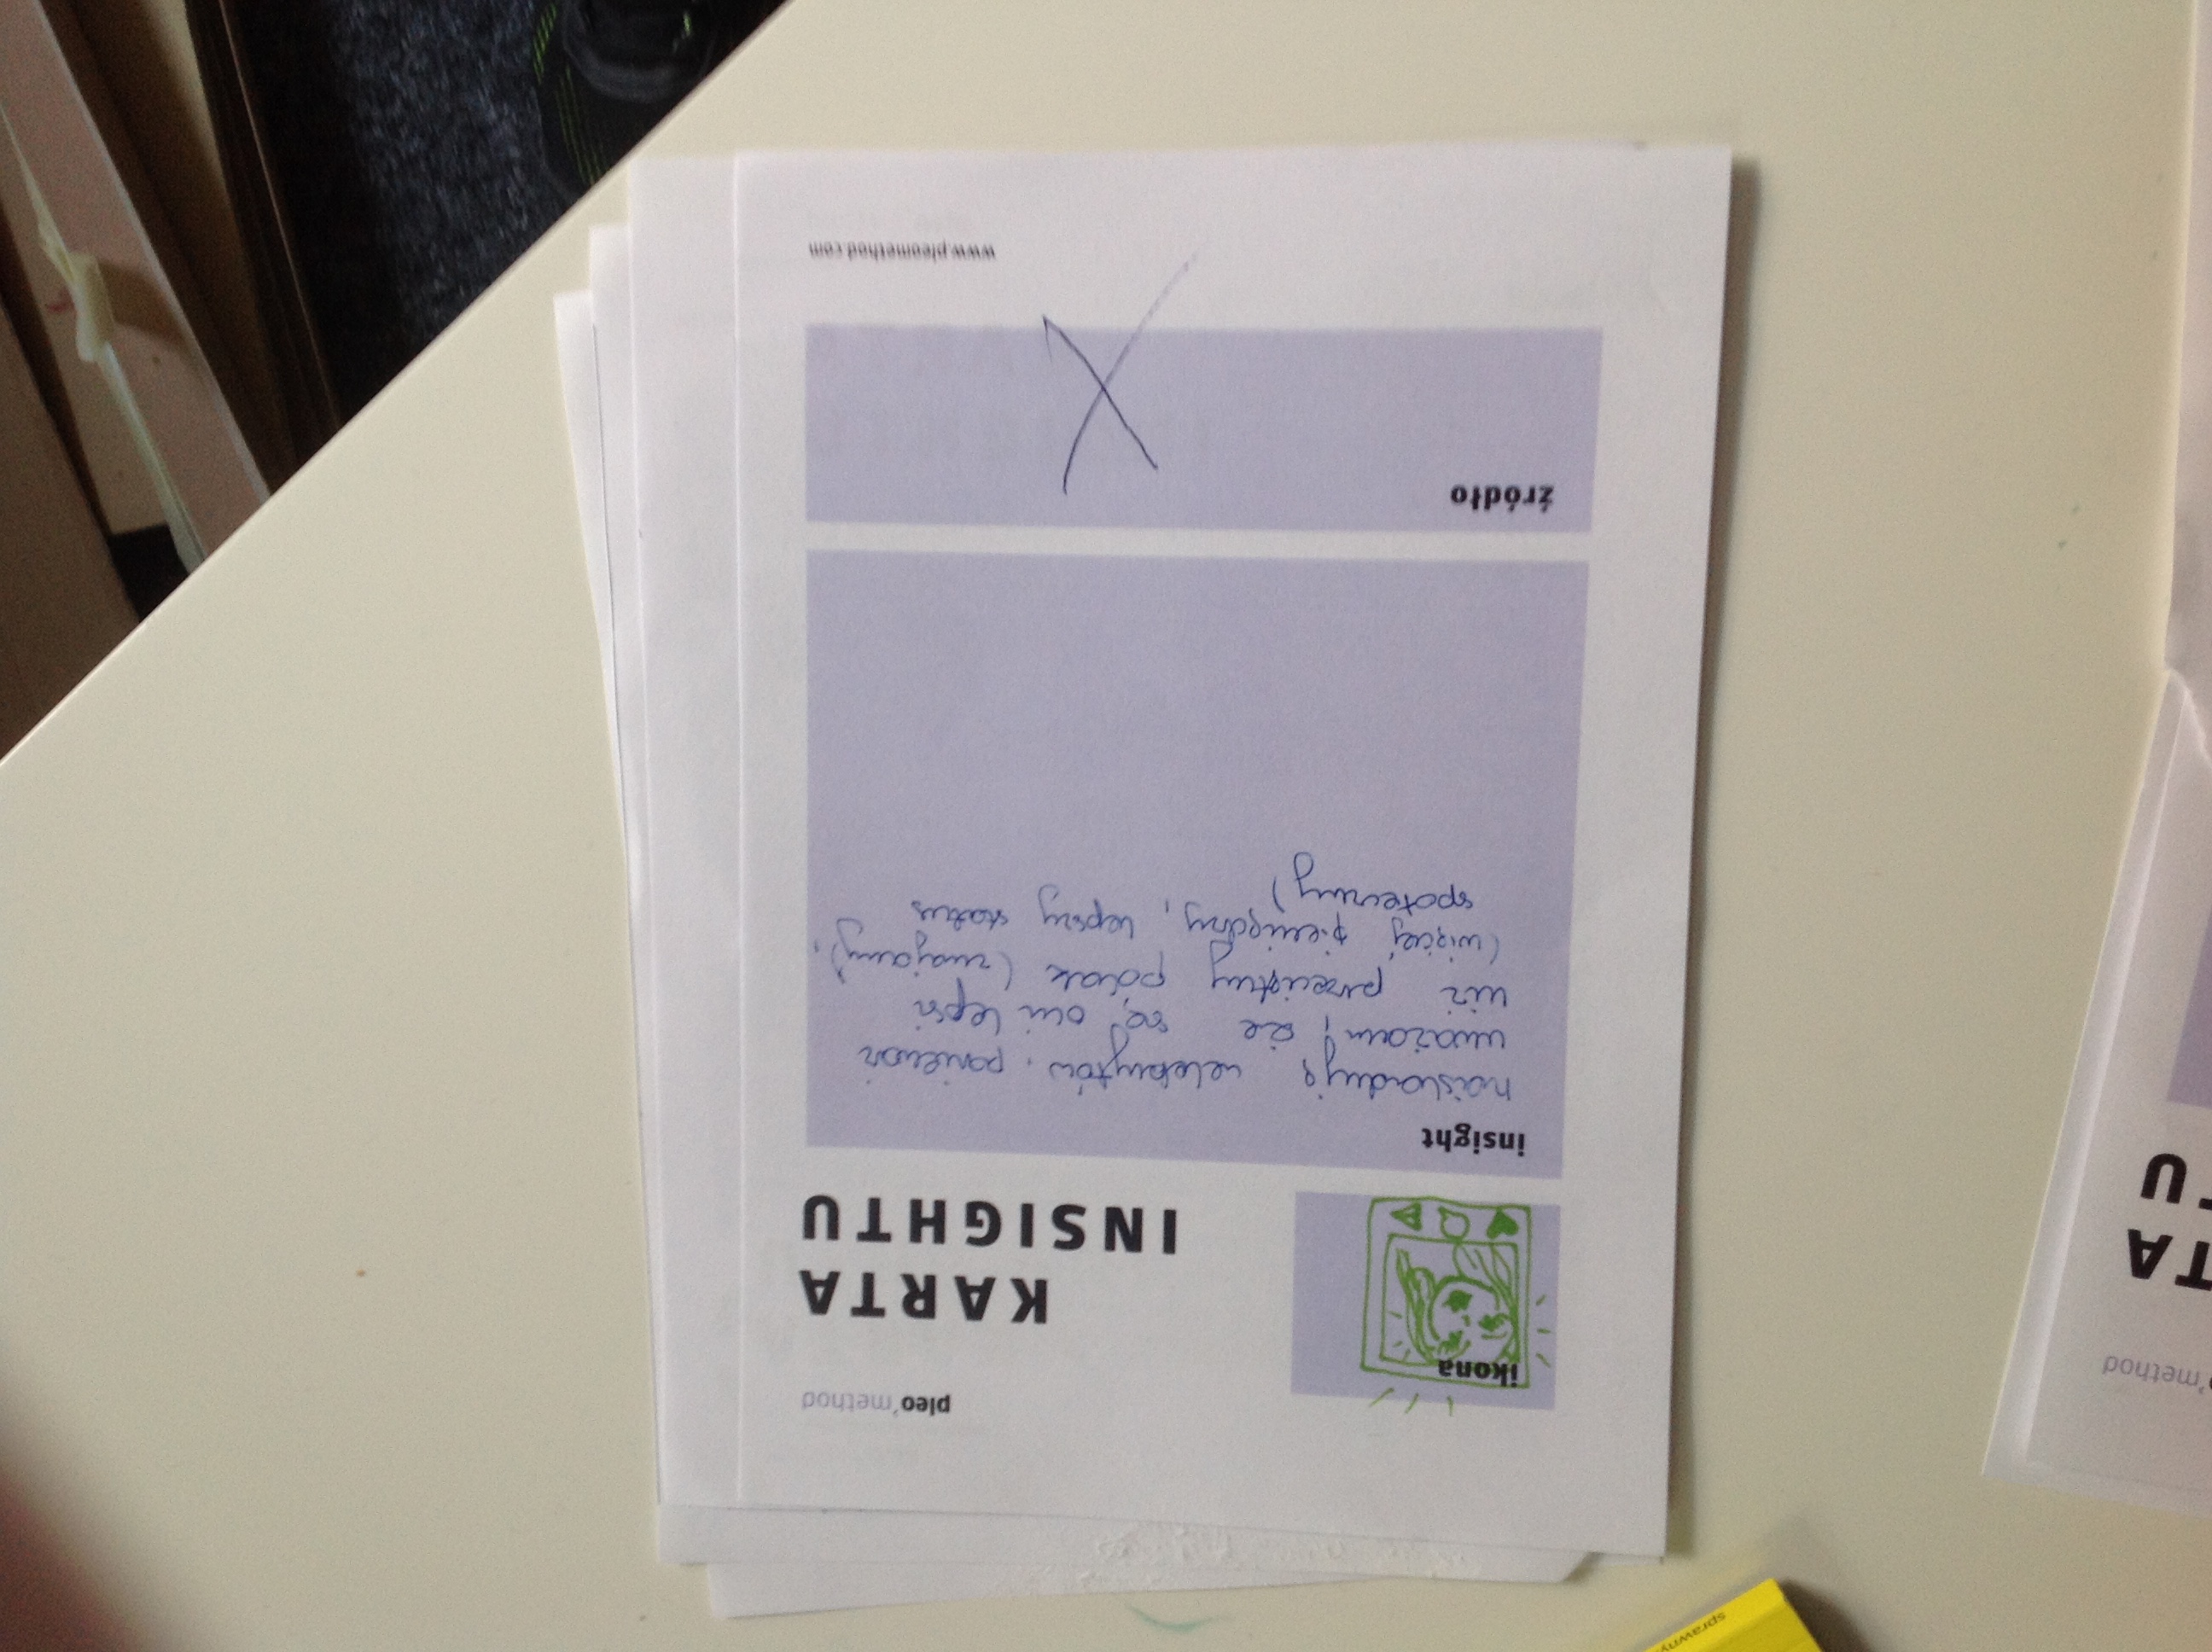 sprawny
'method
TA
TU
pleo'method
ikona
KARTA
INSIGHTU
insight
naśladują celebrytów, ponieważ
uważam, że są oni lepsi
niż przeciętny polak (znajomy),
(więcej pieniędzy, lepszy status
społeczny)
źródło
X
www.pleomethod.com